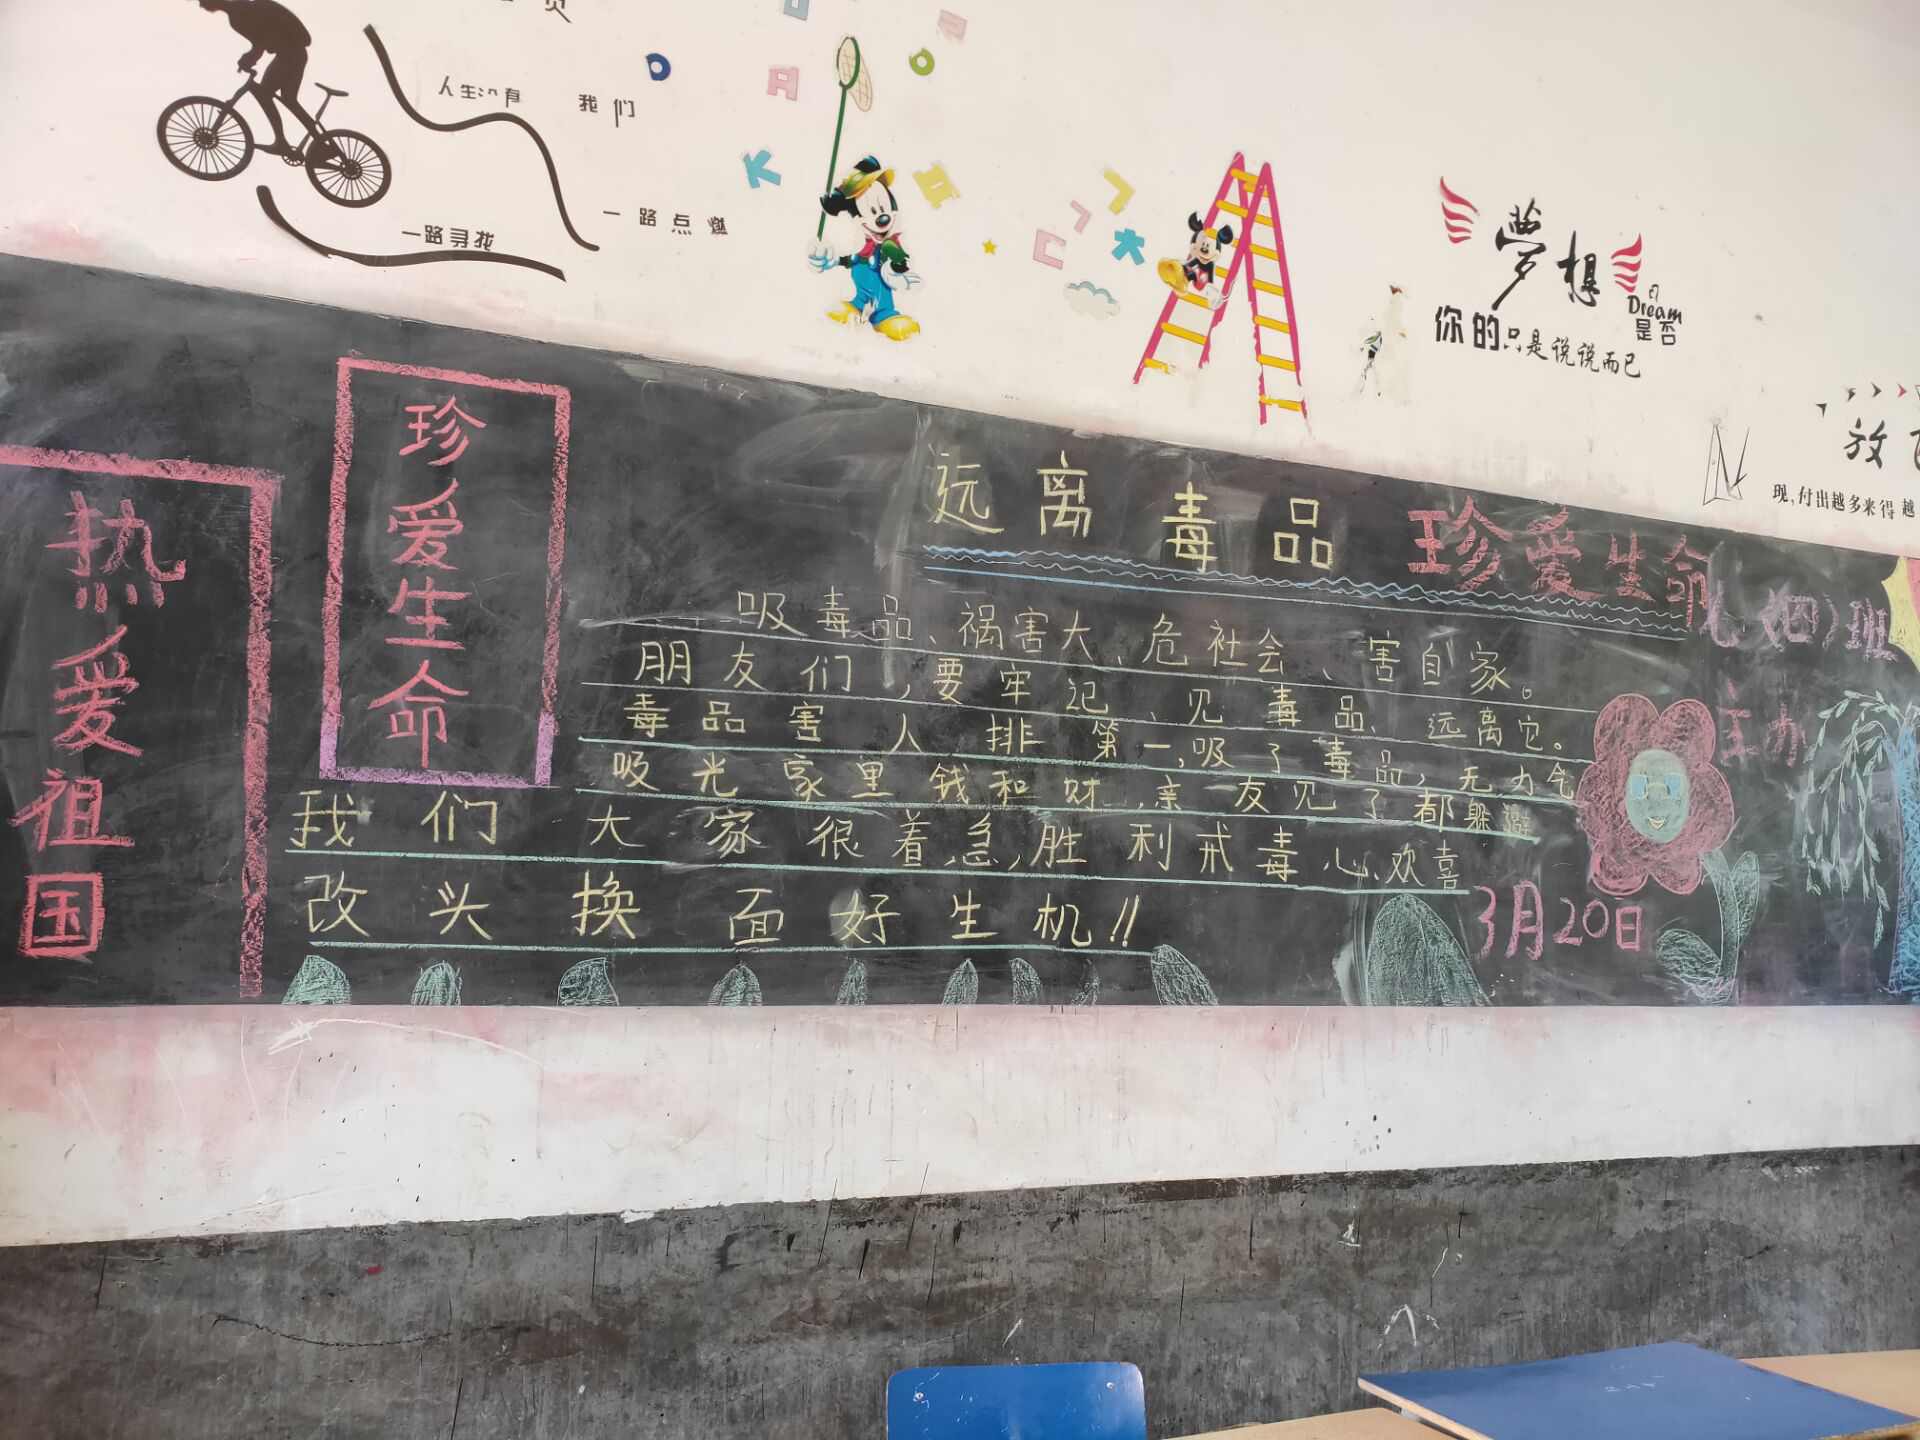 我们
一路寻找
一路点燃
D
A
K
梦想
Dream
你的只是说说而已
是否
放
现,付出越多来得越
热爱祖国
珍爱生命
远离毒品 珍爱生命
七(四)班
主办
吸毒品、祸害大、危社会、害自家。
朋友们,要牢记、见毒品、远离它。
毒品害人排第一,吸了毒品,无力气
吸光家里钱和财,亲友见了都躲避
我们大家很着急,胜利戒毒心欢喜
改头换面好生机!!
3月20日